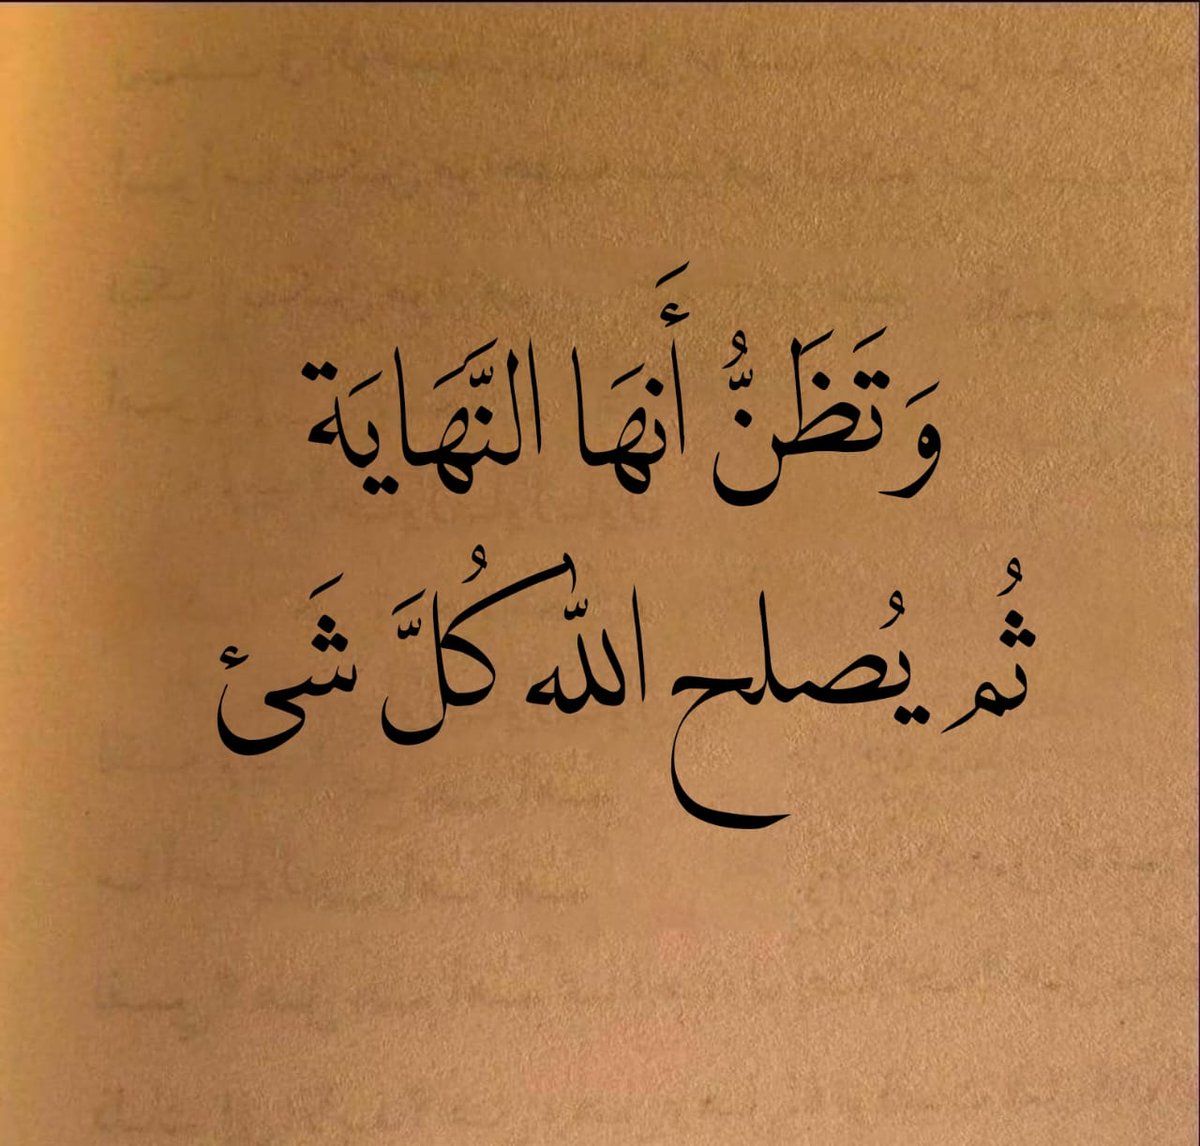 وَتَظَنُّ أَنهَا النَّهَايَة
ثُم يُصلح اللّٰه كُلَّ شَئ